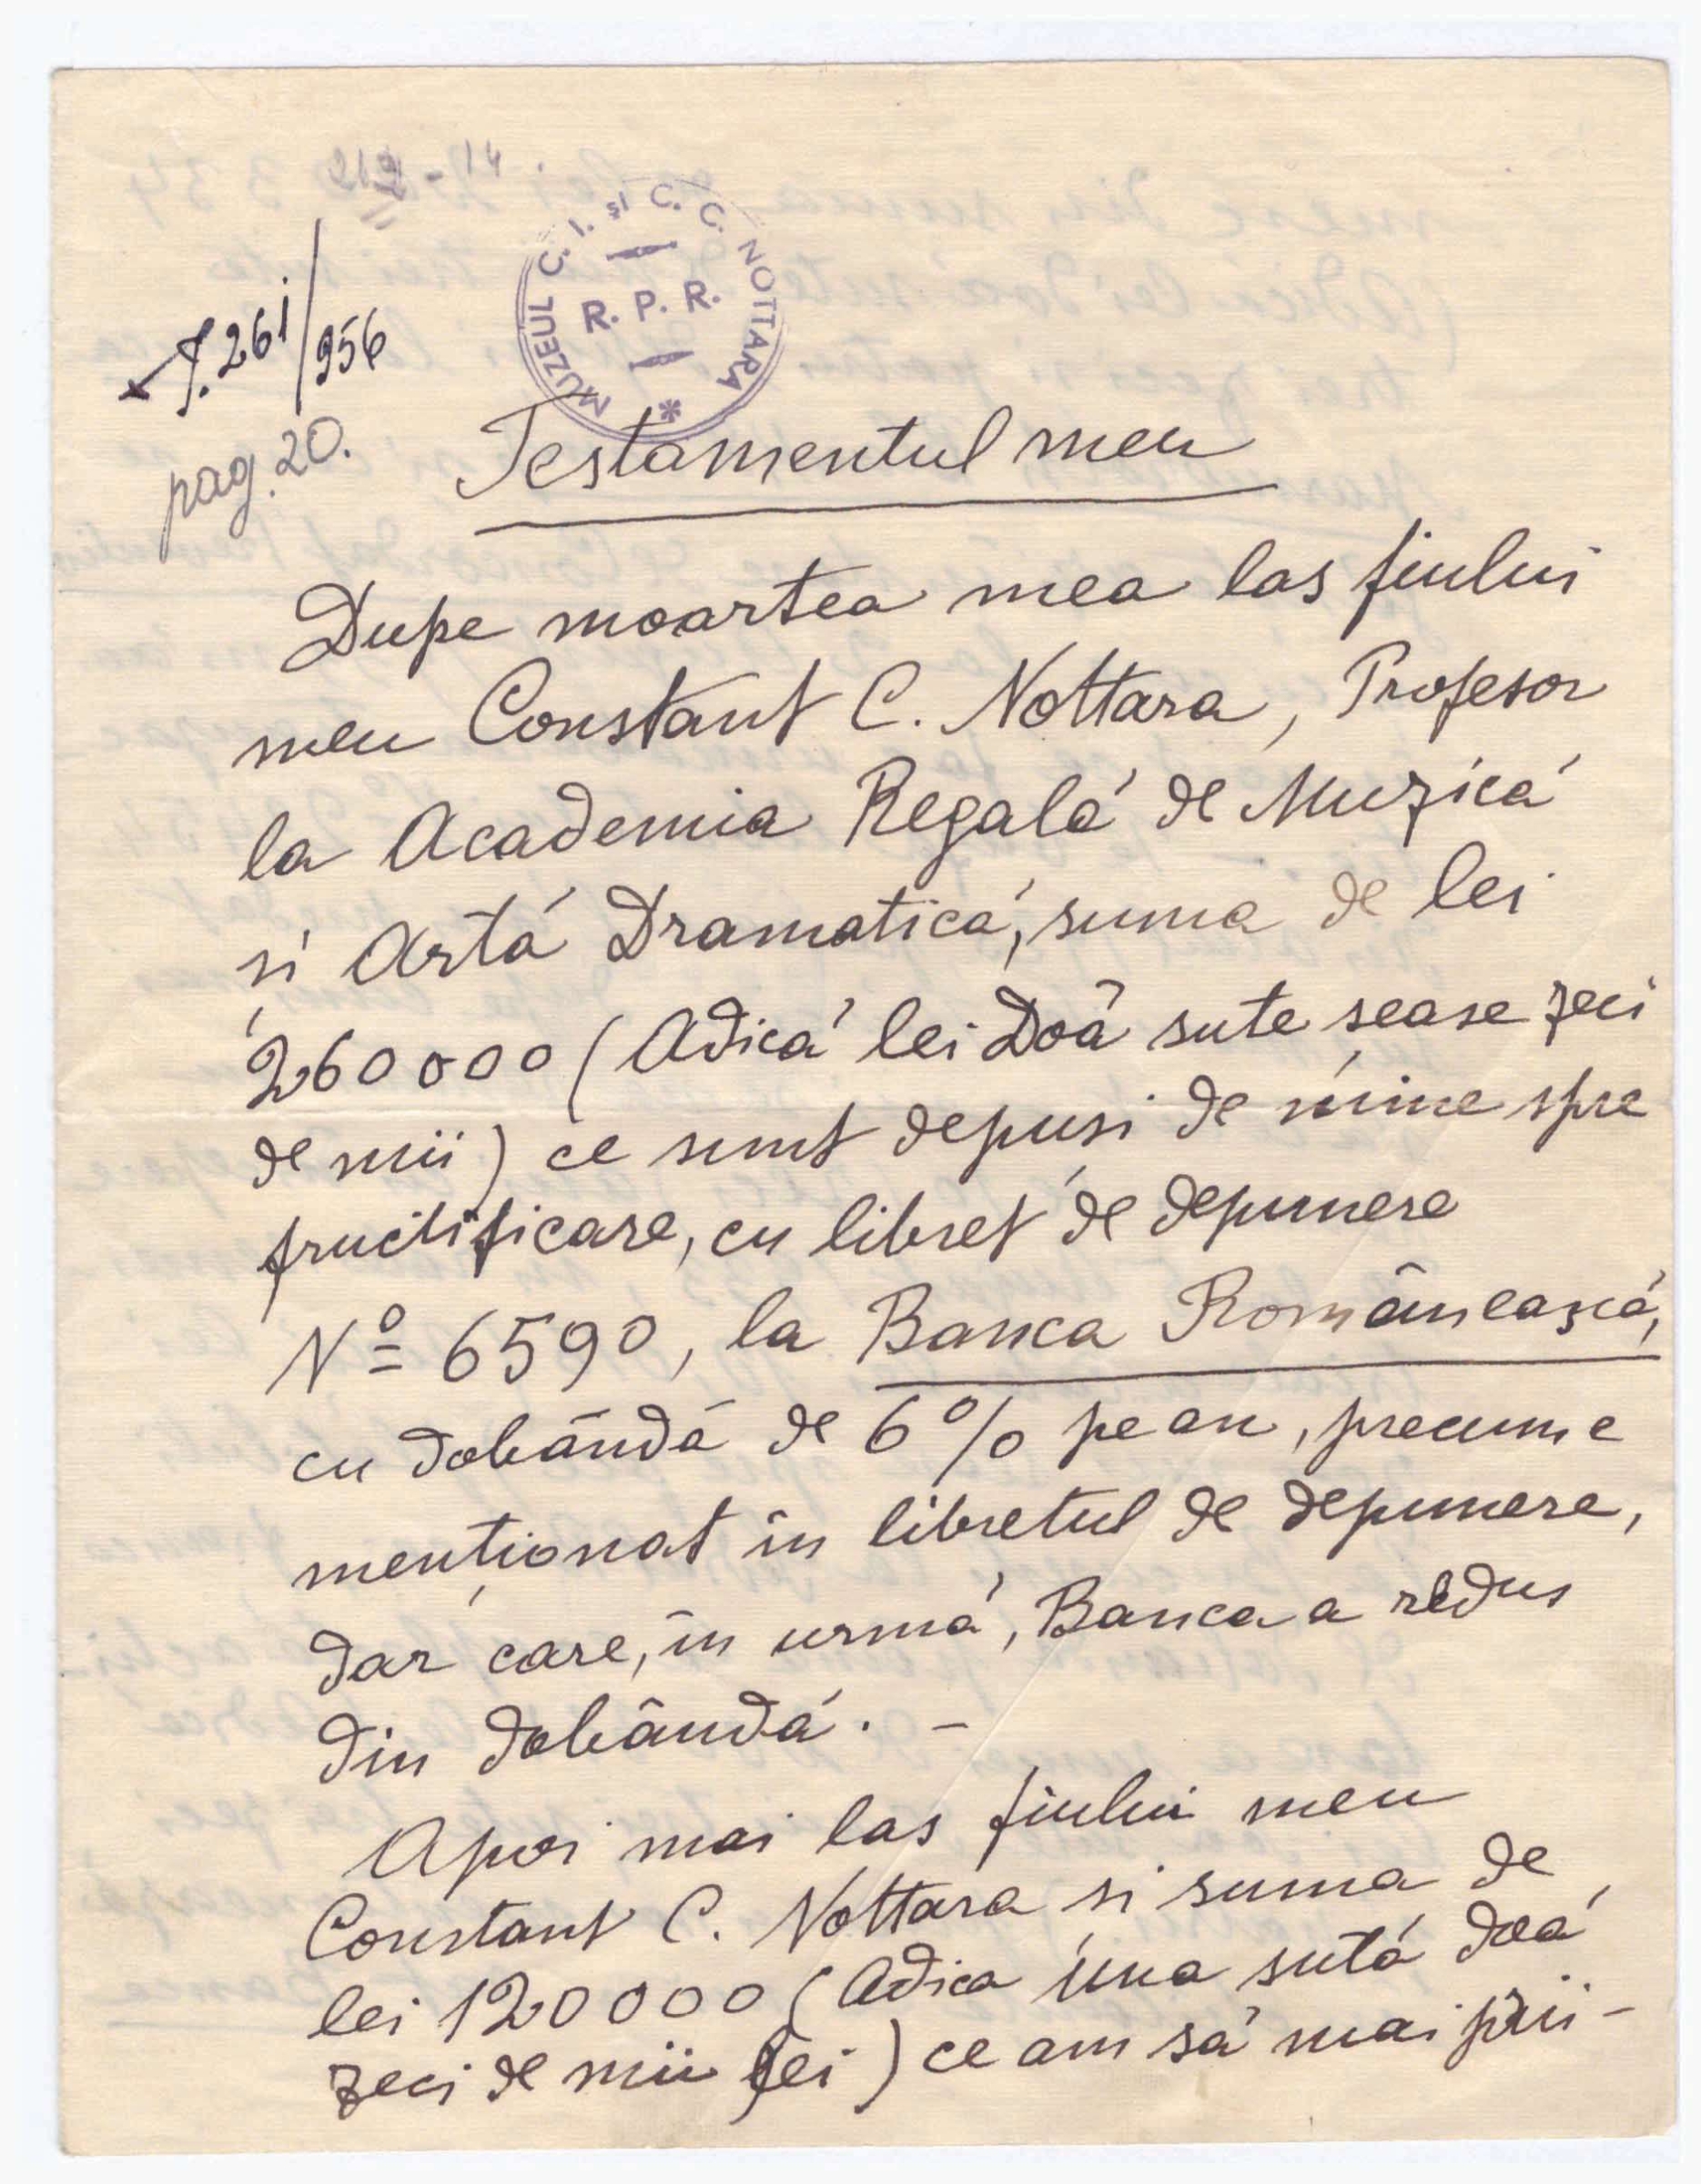 212-14.
MUZEUL C. I. și C. C. NOTTARA
R. P. R.
I.261/956
pag.20.
Testamentul meu
Dupe moartea mea las fiului
meu Constant C. Nottara, Profesor
la Academia Regală de Muzică
si Artă Dramatică, suma de lei
260000 (Adică lei Doă sute sease zeci
de mii) ce sunt depusi de mine spre
fructificare, cu libret de depunere
Nº 6590, la Banca Românească,
cu dobândă de 6% pe an, precum e
menționat în libretul de depunere,
dar care, în urmă, Banca a redus
din dobândă. –
Apoi mai las fiului meu
Constant C. Nottara si suma de
lei 120000 (Adica una sută doă
zeci de mii lei) ce am să mai prii-